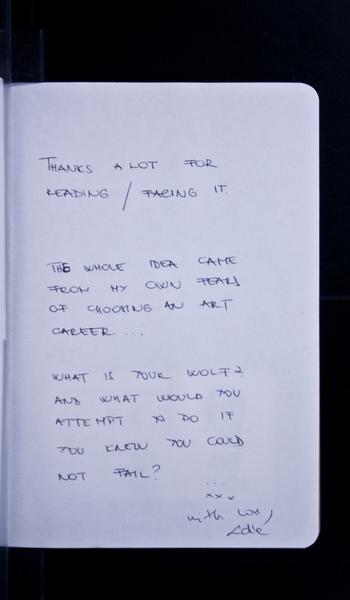 THANKS A LOT FOR
READING / FACING IT.
THE WHOLE IDEA CAME
FROM MY OWN FEARS
OF CHOOSING AN ART
CAREER ...
WHAT IS YOUR WOLF?
AND WHAT WOULD YOU
ATTEMPT TO DO IF
YOU KNEW YOU COULD
NOT FAIL?
...
xxx
with